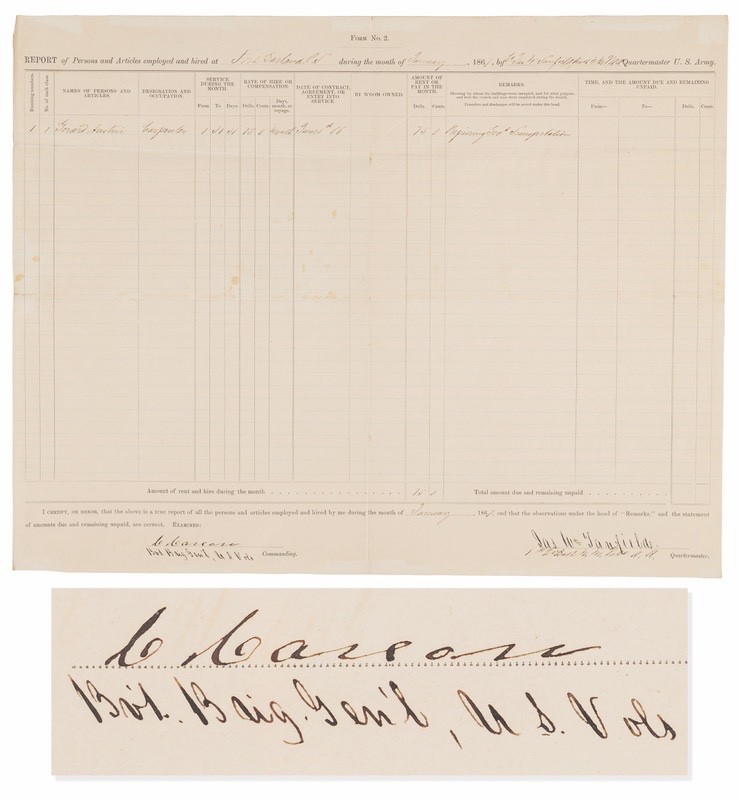 FORM NO. 2.
REPORT of Persons and Articles employed and hired at during the month of January, 186 , by Quartermaster U. S. Army.
Running numbers.
No. of each class.
NAMES OF PERSONS AND ARTICLES.
DESIGNATION AND OCCUPATION.
SERVICE DURING THE MONTH
From To Days
RATE OF HIRE OR COMPENSATION
Dolls. Cents. Days, month, or voyage.
DATE OF CONTRACT, AGREEMENT, OR ENTRY INTO SERVICE
BY WHOM OWNED.
AMOUNT OF RENT OR PAY IN THE MONTH.
Dolls. Cents.
REMARKS.
TIME, AND THE AMOUNT DUE AND REMAINING UNPAID.
From— To— Dolls. Cents.
1 1 Carpenter 1 31 31 month 75
Amount of rent and hire during the month 75
Total amount due and remaining unpaid
I CERTIFY, ON HONOR, that the above is a true report of all the persons and articles employed and hired by me during the month of January 186 , and that the observations under the head of "Remarks," and the statement
of amounts due and remaining unpaid, are correct. EXAMINED:
C Carson
Bvt. Brig. Gen'l, U S Vols Commanding.
Quartermaster.
C Carson
Bvt. Brig. Gen'l, U S. Vols